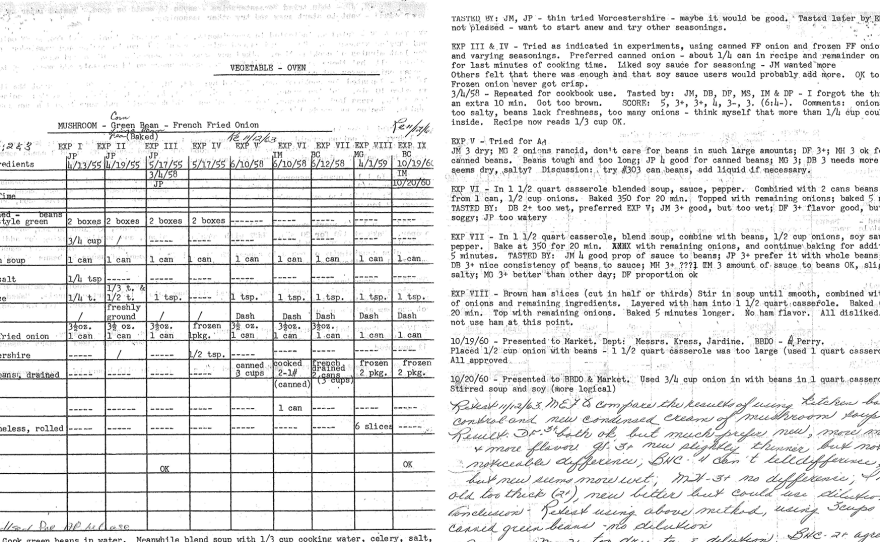 VEGETABLE - OVEN
Corn
MUSHROOM - Green Bean - French Fried Onion
(Baked)
Re 11/12/63
EXP I EXP II EXP III EXP IV EXP V EXP VI EXP VII EXP VIII EXP IX
redients
JP JP JP IM BC MG BC
4/13/55 4/19/55 5/17/55 5/17/55 6/10/58 6/10/58 6/12/58 4/1/59 10/19/60
3/4/58 IM
JP 10/20/60
ime
beans
style green 2 boxes 2 boxes 2 boxes 2 boxes ----- ----- ----- ----- -----
3/4 cup / ----- ----- ----- ----- ----- ----- -----
n soup 1 can 1 can 1 can 1 can 1 can 1 can 1 can 1 can 1 can
salt 1/4 tsp ----- ----- ----- ----- ----- ----- ----- -----
ce 1/4 t. 1/3 t. & 1/2 t. 1 tsp. ----- 1 tsp. 1 tsp. 1 tsp. 1 tsp. 1 tsp.
/ freshly ground / / Dash Dash Dash Dash Dash
fried onion 3½oz. 1 can 3½ oz. 1 can 3½oz. 1 can frozen 1pkg. 3½ oz. 1 can 1 can 1 can 1 can 1 can
ershire ----- / ----- 1/2 tsp. ----- ----- ----- ----- -----
eans, drained ----- ----- ----- ----- canned 3 cups cooked 2-1# (canned) french drained 2 cans (3 cups) frozen 2 pkg. frozen 2 pkg.
----- ----- ----- ----- ----- 1 can ----- ----- -----
neless, rolled ----- ----- ----- ----- ----- ----- ----- 6 slices -----
OK OK
Cook green beans in water. Meanwhile blend soup with 1/3 cup cooking water, celery, salt,
TASTED BY: JM, JP - thin tried Worcestershire - maybe it would be good. Tasted later by
not pleased - want to start anew and try other seasonings.
EXP III & IV - Tried as indicated in experiments, using canned FF onion and frozen FF onio
and varying seasonings. Preferred canned onion - about 1/4 can in recipe and remainder on
for last minutes of cooking time. Liked soy sauce for seasoning - JM wanted more
Others felt that there was enough and that soy sauce users would probably add more. OK to
Frozen onion never got crisp.
3/4/58 - Repeated for cookbook use. Tasted by: JM, DB, DF, MS, IM & DP - I forgot the th
an extra 10 min. Got too brown. SCORE: 5, 3+, 3+, 4, 3-, 3. (6:4-). Comments: onions
too salty, beans lack freshness, too many onions - think myself that more than 1/4 cup cou
inside. Recipe now reads 1/3 cup OK.
EXP V - Tried for Ad
JM 3 dry; MG 2 onions rancid, don't care for beans in such large amounts; DF 3+; MH 3 ok fo
canned beans. Beans tough and too long; JP 4 good for canned beans; MG 3; DB 3 needs more
seems dry, salty? Discussion: try #303 can beans, add liquid if necessary.
EXP VI - In 1 1/2 quart casserole blended soup, sauce, pepper. Combined with 2 cans beans
from 1 can, 1/2 cup onions. Baked 350 for 20 min. Topped with remaining onions; baked 5 m
TASTED BY: DB 2+ too wet, preferred EXP V; JM 3+ good, but too wet; DF 3+ flavor good, but
soggy; JP too watery
EXP VII - In 1 1/2 quart casserole, blend soup, combine with beans, 1/2 cup onions, soy sau
pepper. Bake at 350 for 20 min. XXXX with remaining onions, and continue baking for addi
5 minutes. TASTED BY: JM 4 good prop of sauce to beans; JP 3+ prefer it with whole beans
DB 3+ nice consistency of beans to sauce; MH 3+ ???; IM 3 amount of sauce to beans OK, slig
salty; MG 3+ better than other day; DF proportion ok
EXP VIII - Brown ham slices (cut in half or thirds) Stir in soup until smooth, combined wit
of onions and remaining ingredients. Layered with ham into 1 1/2 quart casserole. Baked
20 min. Top with remaining onions. Baked 5 minutes longer. No ham flavor. All disliked.
not use ham at this point.
10/19/60 - Presented to Market. Dept: Messrs. Kress, Jardine. BBDO - Perry.
Placed 1/2 cup onion with beans - 1 1/2 quart casserole was too large (used 1 quart cassero
All approved.
10/20/60 - Presented to BBDO & Market. Used 3/4 cup onion in with beans in 1 quart cassero
Stirred soup and soy (more logical)
Retest 11/12/63 MEJ to compare the results of using kitchen
control and new condensed cream of mushroom soup
Result: DF 3+ both ok but much prefer new, more
+ more flavor 3+ new slightly thinner but not
noticeable difference, BHC 4 can't tell difference,
but new seems more wet; 3+ no difference;
old too thick (2+), new better but could use dilution
Conclusion - Retest using above method, using 3 cups
canned green beans - no dilution